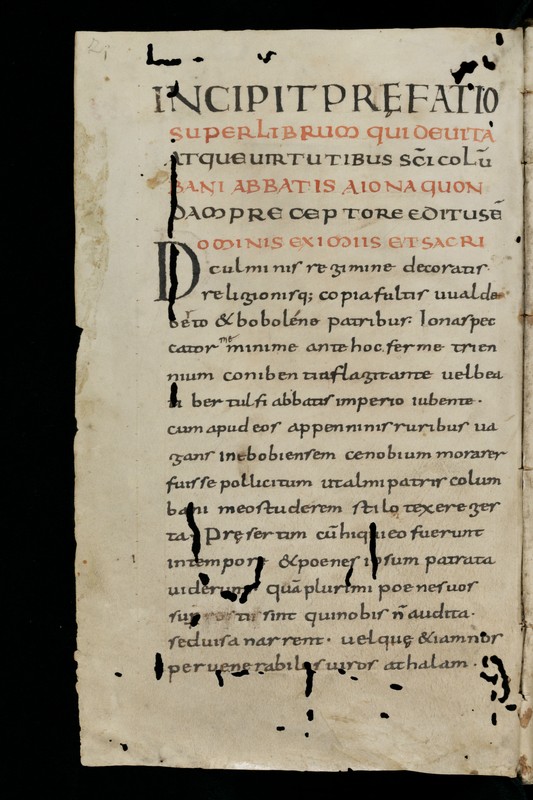 INCIPIT PRĘFATIO
SUPER LIBRUM QUI DE UITA
ATQUE UIRTUTIBUS SC̄I COLŪ
BANI ABBATIS A IONA QUON
DAM PRECEPTORE EDITUS Ē
DOMINIS EXIMIIS ET SACRI
culminis regimine decoratis
religionisq; copia fultis uualde
berto & boboléno patribus. Ionas pec
cator me minime ante hoc ferme trien
nium conibentia flagitante uel bea
ti bertulfi abbatis imperio iubente.
cum apud eos appenninis ruribus ua
gans in ebobiensem cenobium morarer
fuisse pollicitum ut almi patris colum
bani meo studerem stilo texere ges
ta. Pręsertim cū hi qui eo fuerunt
in tempore & poenes ipsum patrata
uiderunt quā plurimi poenes uos
sint qui nobis n̄ audita.
sed uisa narrent. uel quę & iam nos
per uenerabiles uiros athalam.